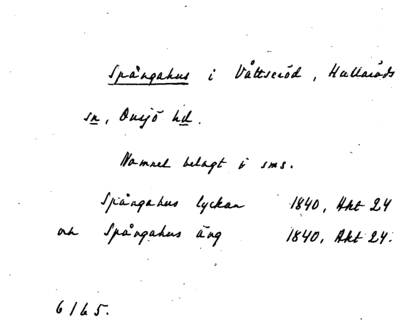 Spångahus i Våttseröd, Hallaröds
sn, Onsjö hd.
Namnet belagt i sms.
Spångahus lyckan 1840, Akt 24
och Spångahus äng 1840, Akt 24.
6165.